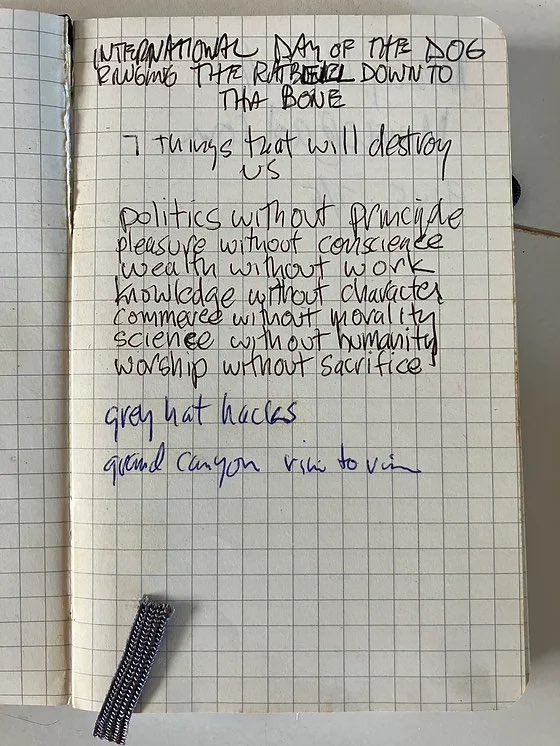 INTERNATIONAL DAY OF THE DOG
RINGING THE RATBELL DOWN TO
THA BONE
7 things that will destroy
us
politics without principle
pleasure without conscience
wealth without work
knowledge without character
commerce without morality
science without humanity
worship without sacrifice
grey hat hacks
grand canyon rim to rim